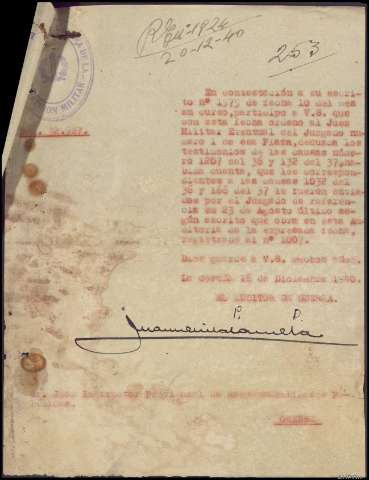 Rº Gº 1924
20-12-40
253
En contestación a su escri-
to nº 1575 de fecha 10 del mes
en curso, participo a V.S. que
con esta fecha ordeno al Juez
Militar Eventual del Juzgado nú-
mero 1 de esa Plaza, deduzca los
testimonios de las causas número
1267 del 36 y 132 del 37,
cuenta, que los correspon-
dientes a las causas 1632 del
36 y 166 del 37 le fueron envia-
dos por el Juzgado de referen-
cia en 23 de Agosto último se-
gún escrito que obra en esta Au-
ditoría de la expresada fecha,
registrado al nº 1007.
Dios guarde a V.S. muchos años.
La Coruña 16 de Diciembre 1940.
EL AUDITOR DE GUERRA.
P. D.
Sr. Juez Instructor Provincial de Responsabilidades Po-
líticas.
ORENSE